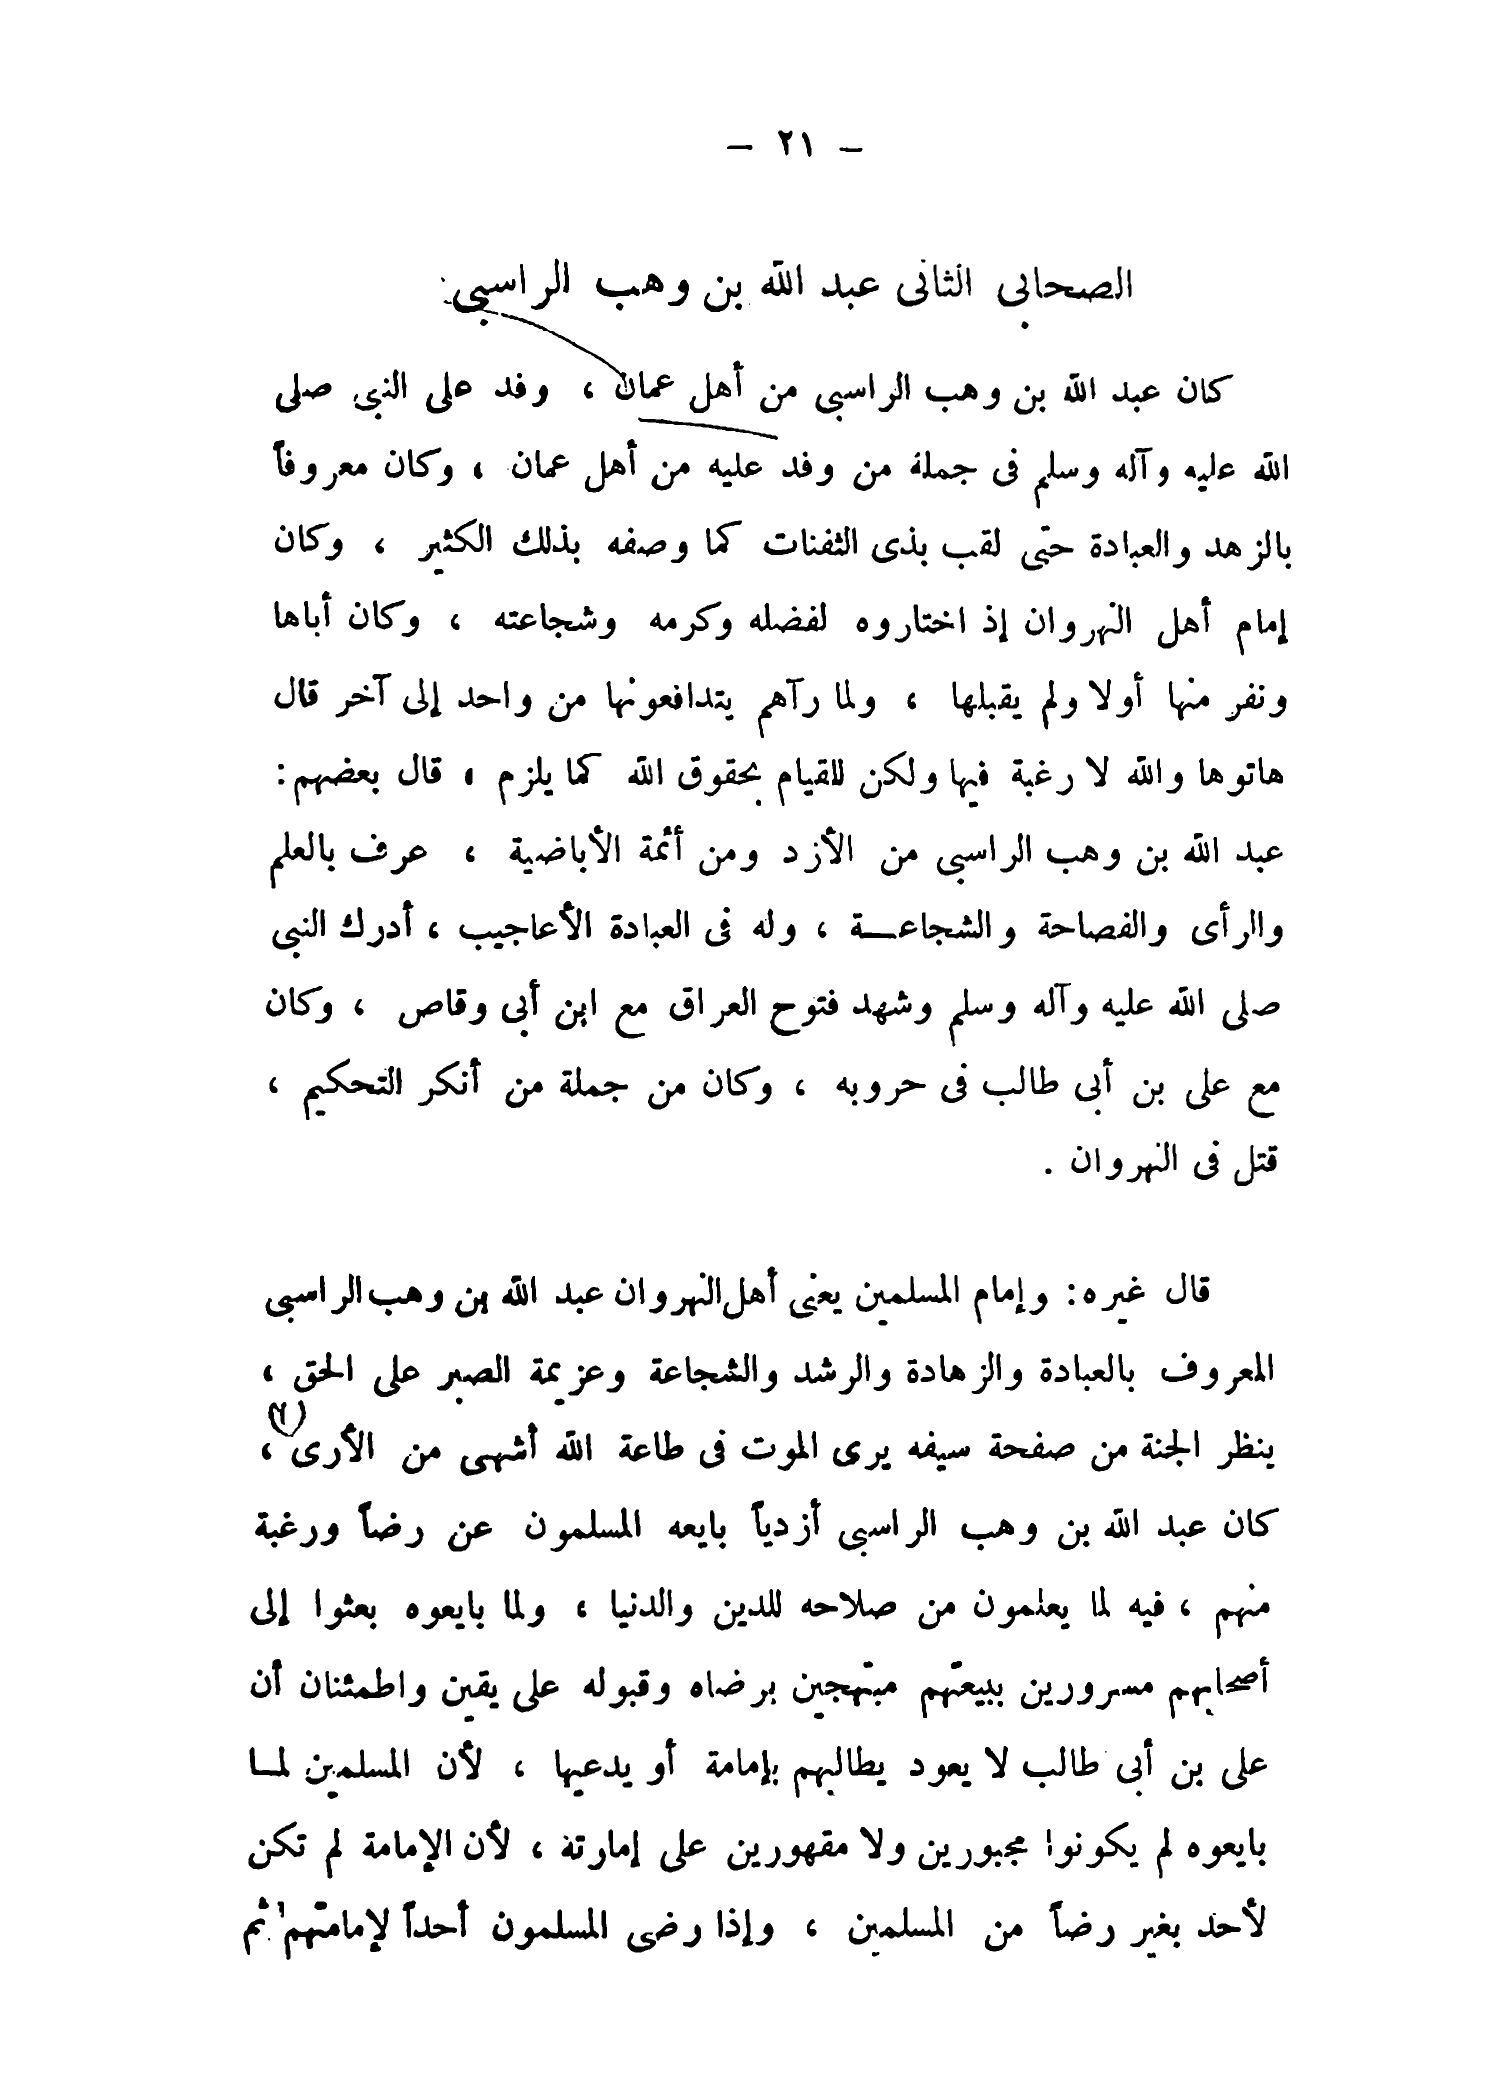 – ٢١ –
الصحابي الثانى عبد الله بن وهب الراسبي:
كان عبد الله بن وهب الراسبى من أهل عمان ، وفد على النبى صلى
الله عليه وآله وسلم فى جملة من وفد عليه من أهل عمان ، وكان معروفاً
بالزهد والعبادة حتى لقب بذى الثفنات كما وصفه بذلك الكثير ، وكان
إمام أهل النهروان إذ اختاروه لفضله وكرمه وشجاعته ، وكان أباها
ونفر منها أولا ولم يقبلها ، ولما رآهم يتدافعونها من واحد إلى آخر قال
هاتوها والله لا رغبة فيها ولكن للقيام بحقوق الله كما يلزم ، قال بعضهم:
عبد الله بن وهب الراسبى من الأزد ومن أئمة الأباضية ، عرف بالعلم
والرأى والفصاحة والشجاعــة ، وله فى العبادة الأعاجيب ، أدرك النبى
صلى الله عليه وآله وسلم وشهد فتوح العراق مع ابن أبى وقاص ، وكان
مع على بن أبى طالب فى حروبه ، وكان من جملة من أنكر التحكيم ،
قتل فى النهروان .
قال غيره: وإمام المسلمين يعنى أهل النهروان عبد الله بن وهب الراسبى
المعروف بالعبادة والزهادة والرشد والشجاعة وعزيمة الصبر على الحق ،
ينظر الجنة من صفحة سيفه يرى الموت فى طاعة الله أشهى من الأرى ،
كان عبد الله بن وهب الراسبى أزدياً بايعه المسلمون عن رضاً ورغبة
منهم ، فيه لما يعلمون من صلاحه للدين والدنيا ، ولما بايعوه بعثوا إلى
أصحابهم مسرورين ببيعتهم مبتهجين برضاه وقبوله على يقين واطمئنان أن
على بن أبى طالب لا يعود يطالبهم بإمامة أو يدعيها ، لأن المسلمين لمـا
بايعوه لم يكونوا مجبورين ولا مقهورين على إمارتة ، لأن الإمامة لم تكن
لأحد بغير رضاً من المسلمين ، وإذا رضى المسلمون أحداً لإمامتهم ثم